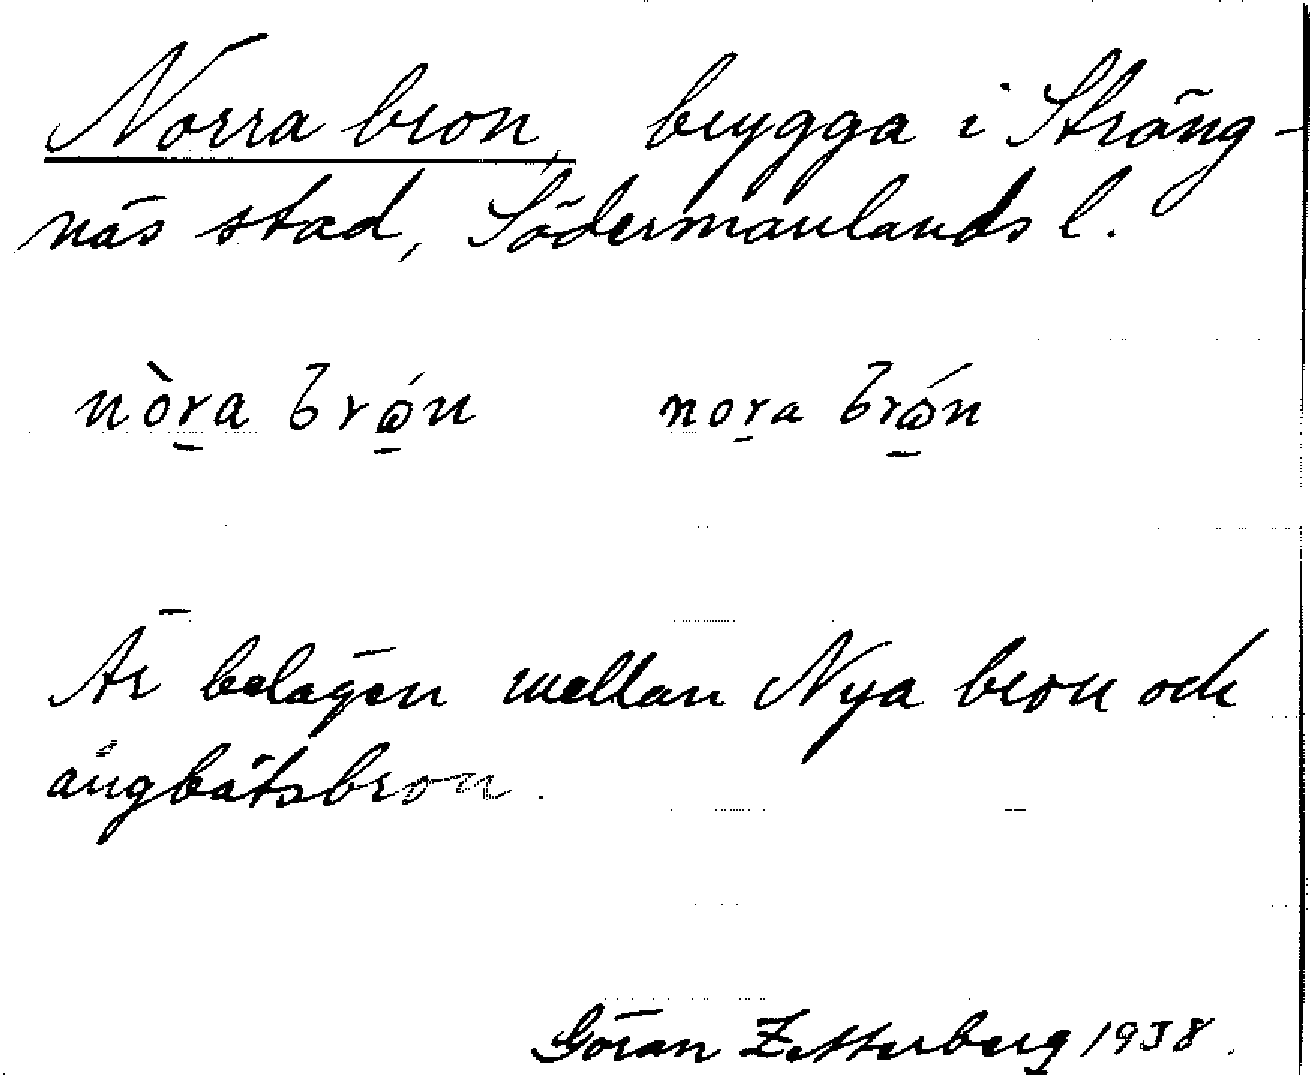 Norra bron, brygga i Sträng-
näs stad, Södermanlands l.
nòr̲a brώ̲n nor̲a brώ̲n
Är belägen mellan Nya bron och
ångbåtsbron.
Göran Zetterberg 1938.